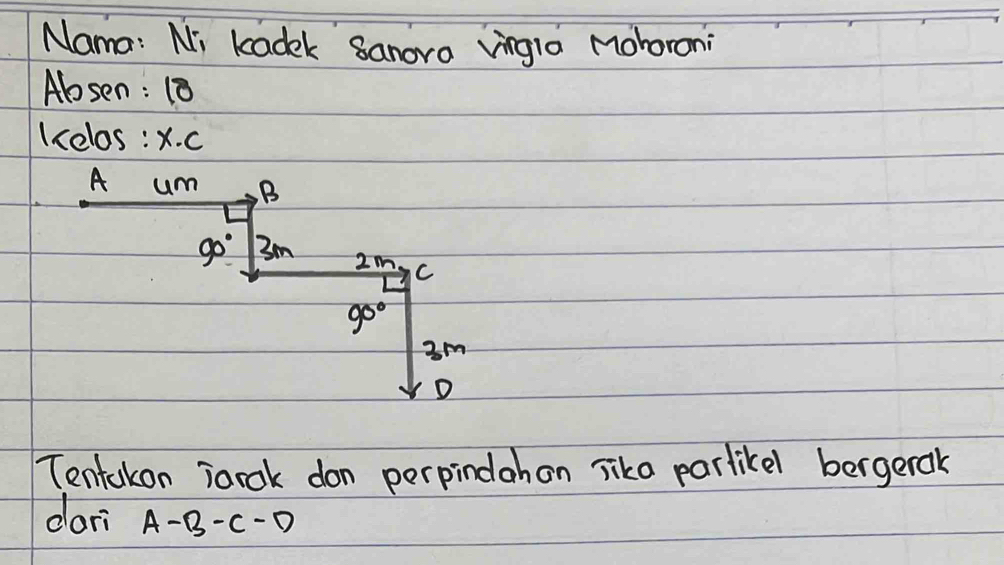 Nama: Ni kadek Sanora Virgia Maharani
Absen: 18
Kelas: X.C
A 4m B
90° 3m
2m C
90°
3m
D
Tentukan jarak dan perpindahan jika partikel bergerak
dari A-B-C-D